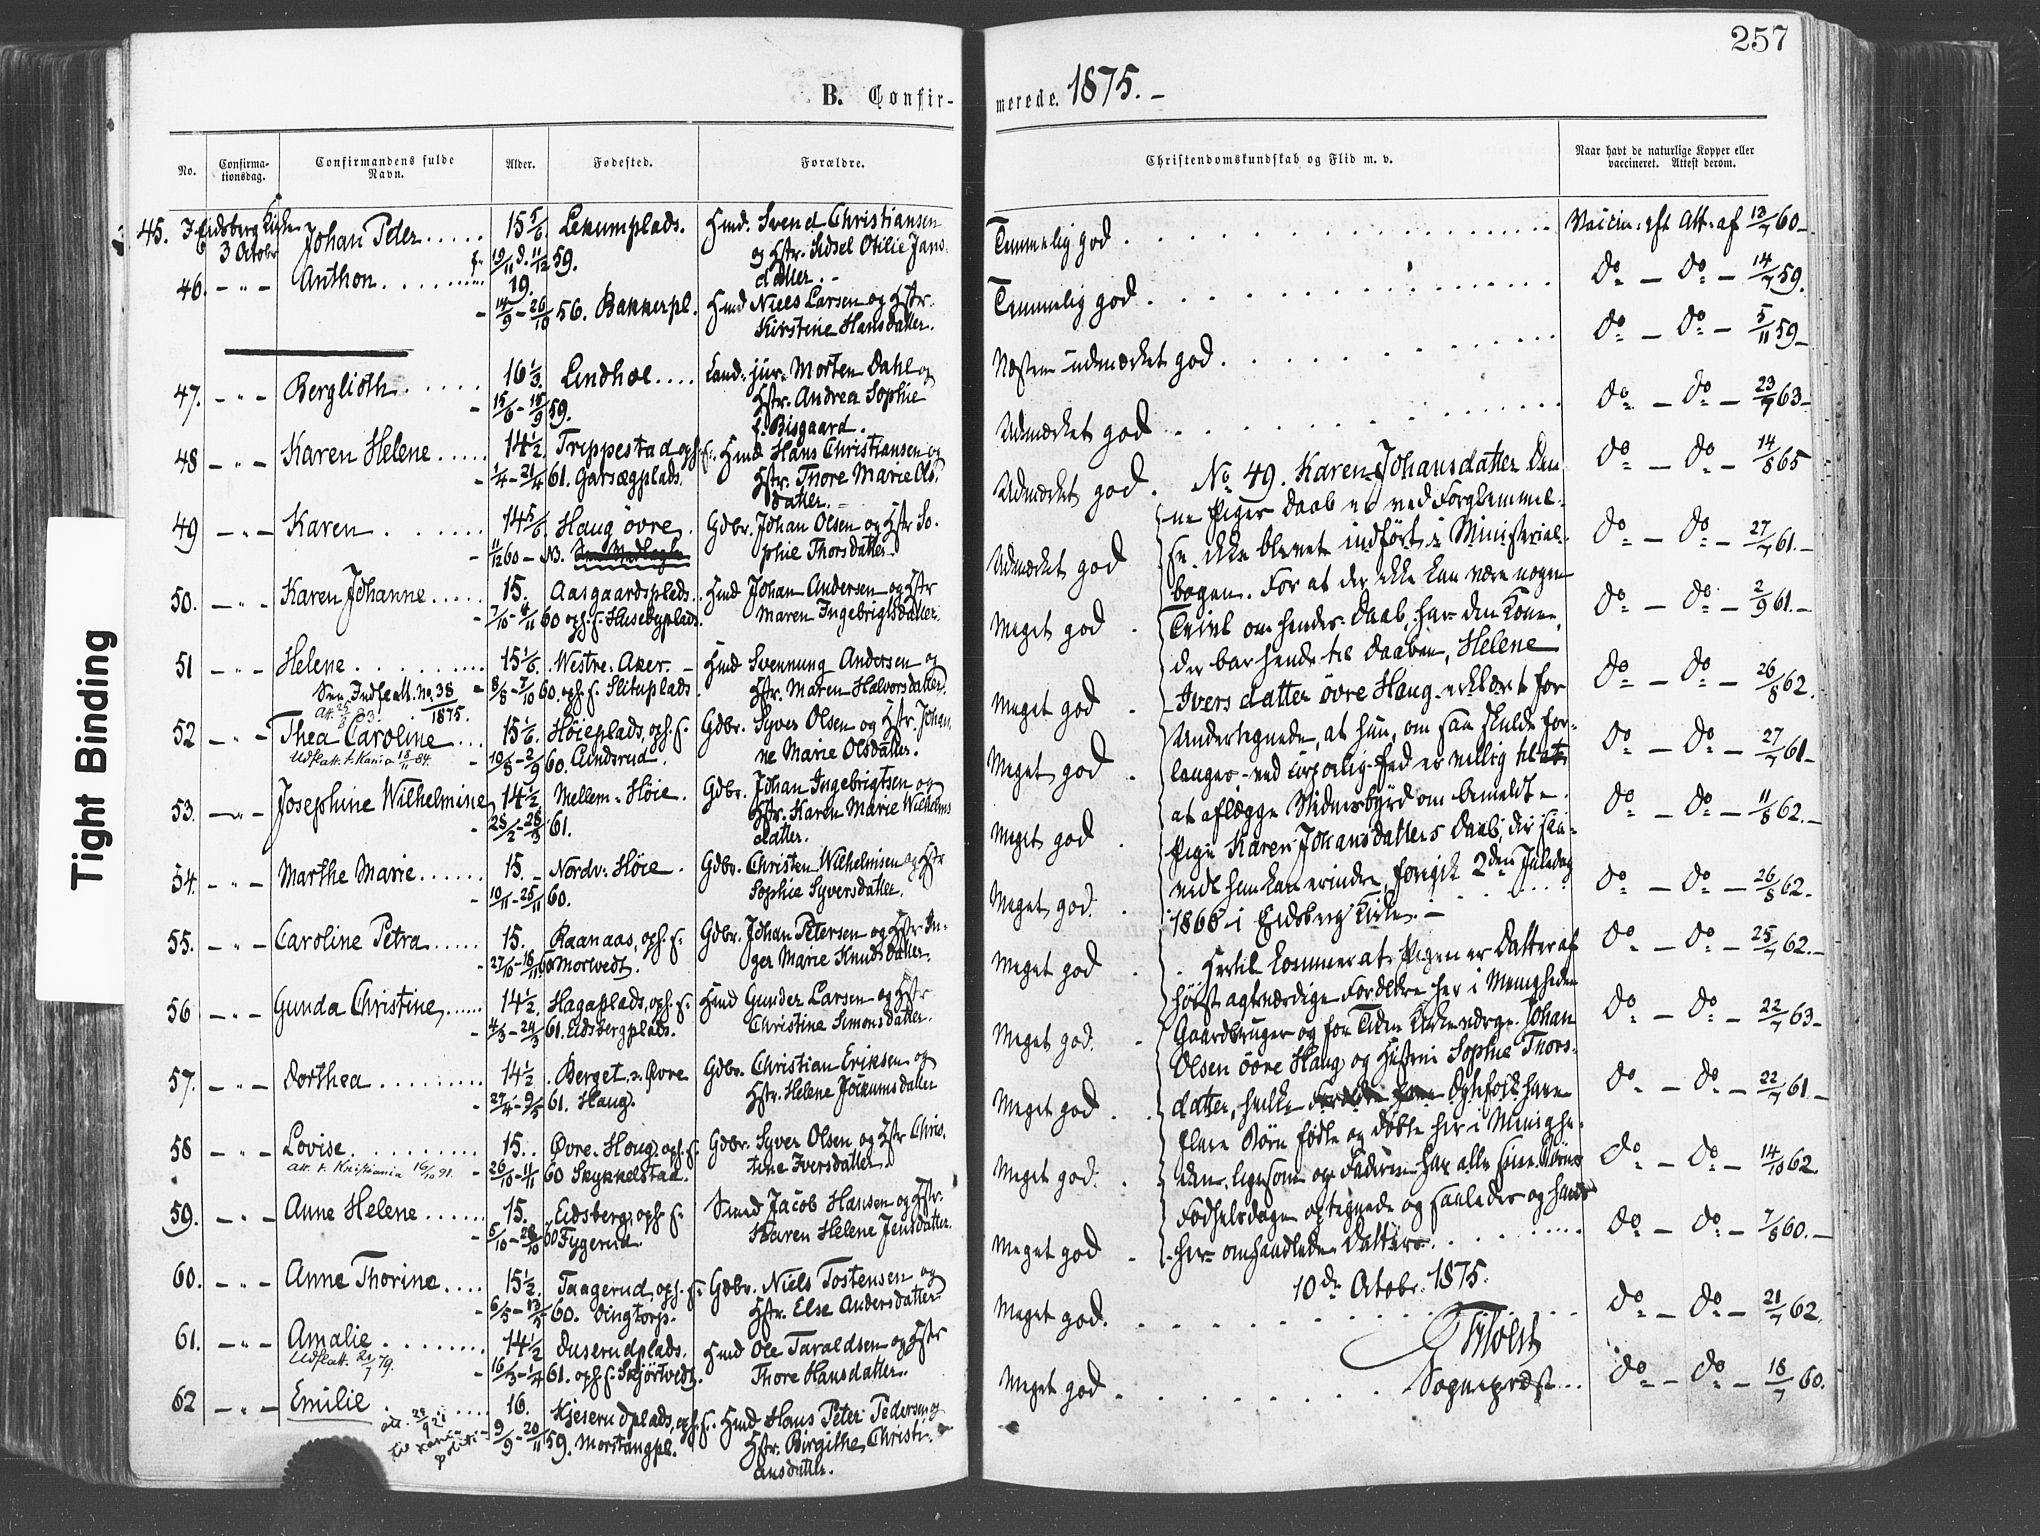 257
B. Confir-
merede. 1875.-
No.
Confirma-
tionsdag.
Confirmandens fulde
Navn.
Alder.
Fødested.
Forældre.
Christendomskundskab og Flid m. v.
Naar havt de naturlige Kopper eller
vaccineret. Attest derom.
Tight Binding
45. I Eidsberg Kirke
3 Octobr
Johan Peder ..... 15 5/6. Lekumplads. Hmd. Svend Christiansen
f. 19/11 d. 11/12 59. og Hstr. Sidsel Otilie Jans-
datter.-
46. - " - Anthon ..... 19.
14/9 - 26/10 56. Bakkerpl. Hmd Niels Larsen og Hstr.
Kirstine Hansdatter.
47. - " - Berglioth ..... 16 1/3. Lindhol .... Cand. jur. Morten Dahl og
15/6 - 15/9 59. Hstr. Andrea Sophie
f. Bisgaard.
48 - " - Karen Helene ..... 14 1/2. Trippestad oph. f. Hmd Hans Christiansen og
1/4 - 21/4 61. Garsægplads. Hstr. Thore Marie Ols-
datter.-
49 - " - Karen ..... 14 5/6. Haug øvre. Gdbr. Johan Olsen og Hstr So-
11/12 60 - NB. phie Thorsdatter.
50. - " - Karen Johanne ..... 15. Aasgaardsplads. Hmd Johan Andersen og Hstr
7/10 - 4/11 60 oph. f. Husebyplads. Maren Ingebrigtsdatter.
51 - " - Helene ..... 15 1/6. Westre. Aker. - Hmd Svennung Andersen og
Indflatt. no. 38
1875.
8/8 - 7/10 60. oph. f. Slituplads Hstr. Maren Halvorsdatter.
52 - " - Thea Caroline .... 15 1/6. Høieplads, oph. f. Gdbr. Syver Olsen og Hstr. Johan-
Udflatt. t. Kania 18/11 84.
10/8 - 2/9 60. Lindsrud. ne Marie Olsdatter.
53. - " - Josephine Wilhelmine 14 1/2. Mellem-Høie. Gdbr. Johan Ingebrigtsen og
28/2 - 28/3 61. Hstr. Karen Marie Wilhelms
datter.
54. - " - Marthe Marie ...... 15. - Nordr. Høie. Gdbr. Christen Wilhelmsen og Hstr
10/11 - 25/11 60. Sophie Syversdatter.
55. - " - Caroline Petra ...... 15. Raanaas, oph. f. Gdbr. Johan Petersen og Hstr In-
27/10 - 18/11 60 Morwedt. ger Marie Knudsdatter.
56 - " - Gunda Christine ...... 14 1/2. Hagaplads, oph. f. Hmd Gunder Larsen og Hstr
4/3 - 24/3 61. Eidsbergplads. Christine Simonsdatter.
57. - " - Dorthea ......... 14 1/2 .Berget u. Øvre Gdbr. Christian Eriksen og
27/4 - 9/5 61. Haug. Hstr. Helene Jockumsdatter
58 - " - Lovise ......... 15. Øvre-Houg, oph. f. Gdbr. Syver Olsen og Hstr Chris-
att. t. Kristiania 16/10 91.
26/10 - 11/11 60 Skykkelstad. tine Iversdatter.
59. - " - Anne Helene ...... 15. Eidsberg, oph. f. Smed Jacob Hansen og Hstr.
5/10 - 28/10 60 Tygerud. Karen Helene Jensdatter.
60. - " - Anne Thorine .... 15 1/2. Taagerud, oph. f. Gdbr. Niels Tostensen og
6/5 - 13/5 60. Vingtorp. Hstr. Else Andersdatter
61. - " - Amalie ......... 14 1/2 Duserudplads. Hmd Ole Taraldsen og Hstr
Udflatt. 21/7 79.
16/3 - 1/4 61. oph. f. Skjörtvedt. Thore Hansdatter.
62 - " - Emilie ......... 16. Kjeserudplads, oph. f. Hmd Hans Peter Pedersen og
att. 28/9 21
til Kania
politi
9/9 - 20/11 59. Morstangpl. Hstr. Birgithe Christi-
ansdatter.
Temmelig god ..... Vaccin. eft Att. af 13/7 60-
Temmelig god ..... do - do - 14/7 59.
Næsten udmærket god ..... do - do - 5/11 59-
Udmærket god ..... do - do - 23/7 63-
Udmærket god. do - do - 14/8 65
Udmærket god do - do - 27/7 61.-
Meget god do - do - 2/9 61.-
Meget god do - do - 26/8 62.
Meget god do - do - 27/7 61-
Meget god do - do - 11/8 62.-
Meget god. do - do - 26/8 62-
Meget god do - do - 25/7 62.-
Meget god. do - do - 22/7 63-
Meget god do - do - 22/7 61.-
Meget god. do - do - 14/10 62.
Meget god do - do - 7/8 60.-
Meget god. do - do - 21/7 62.
Meget god do - do - 18/7 60.
No 49. Karen Johansdatter. Den-
ne Piges Daab er ved Forglemmel-
se ikke blevet indført i Ministerial-
bogen. For at der ikke kan være nogen
Tvivl om hendes Daab, har den Kone,
der bar hende til Daaben, Helene
Iversdatter øvre Haug erklæret for
Undertegnede, at hun, om saa skulde for-
langes - ved corporlig Eed er villig til at
at aflægge Vidnesbyrd om bemeldte
Pige Karen Johansdatters Daab, der skal
efter hvad hun kan erindre, foregik 2den Juledag
1860 i Eidsberg Kirke.-
Hertil kommer at Pigen er Datter af
høist agtværdige Forældre her i Menigheden
Gaardbruger og for Tiden Kirkeværge Johan
Olsen øvre Haug og Hustru Sophie Thors-
datter, hvilke Ægtefolk have
flere Børn fødte og døbte her i Menighe-
den, ligesom og Faderen har alle sine Børns
Fødselsdage optegnede og saaledes og hans
her omhandlede Datters.
10de Octobr. 1875.
Holst
Sognepræst